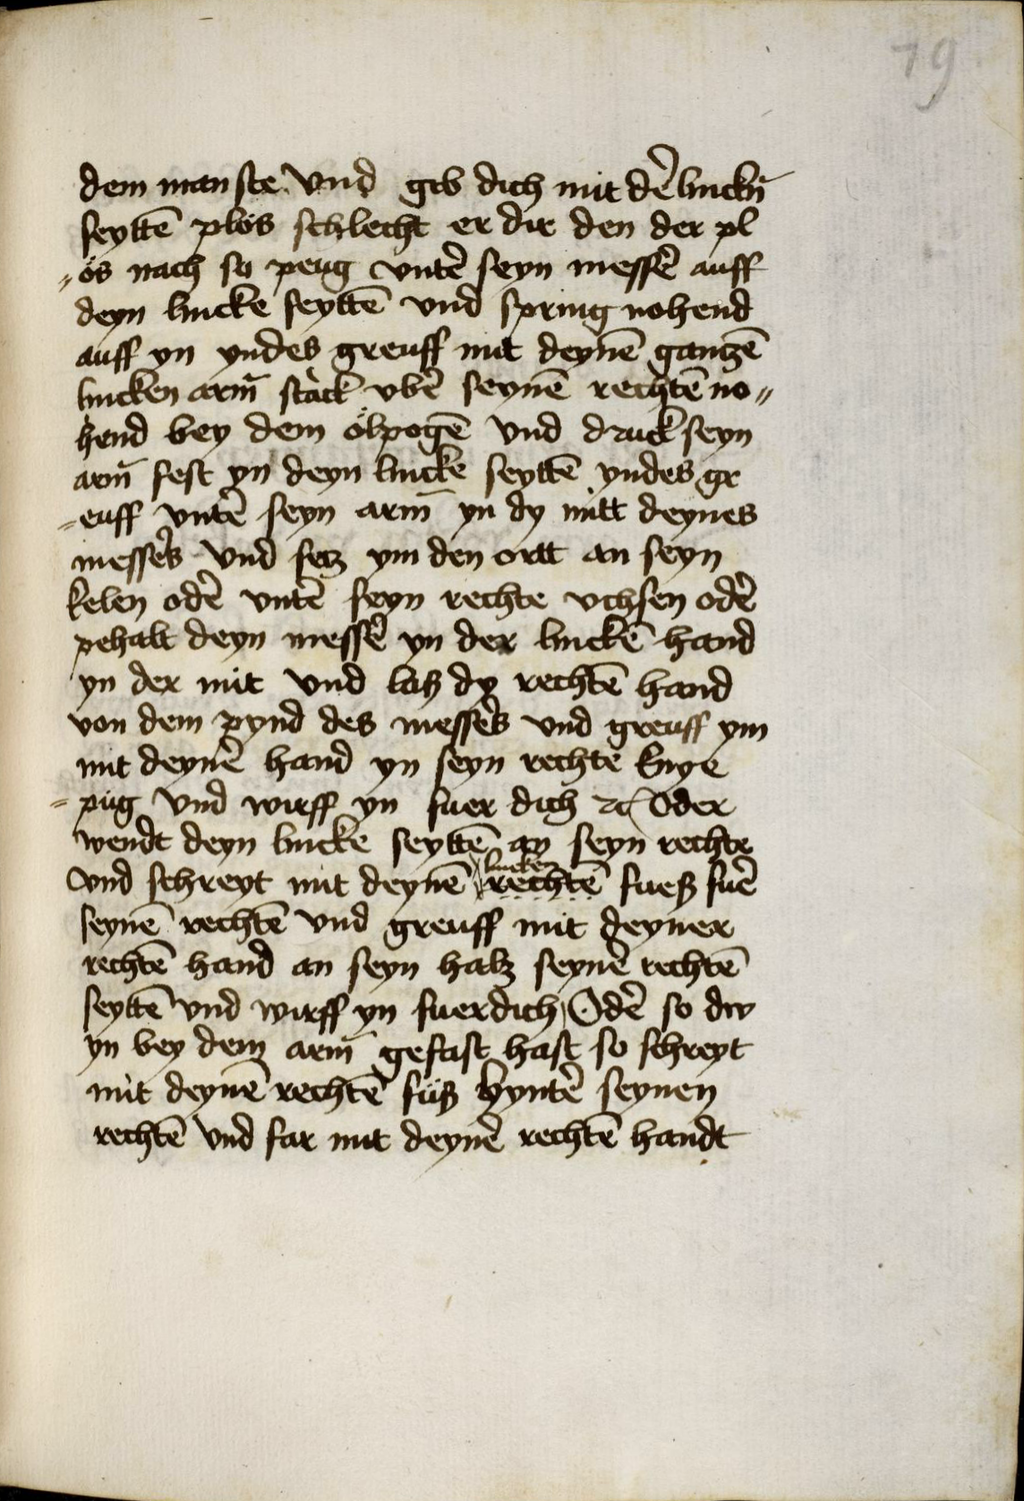 79
dem man ste vnd gib dich mit dē linckn̄
seyttē plös schlecht er dir den der pl
„ös nach so peüg vntē seyn messē auff
deyn lincke seyttē vnd spring nohend
auff yn yndes greuff mit deynē gantzē
lincken arm̄ starck vbē seynē rechtē no„
hend bey dem ölpogē vnd druck seyn
arm̄ fest yn deyn lincke seyttē yndes gr
„euff vntē seyn arm̄ yn dy mitt deynes
messēs vnd setz ym den ortt an seyn
kelen odē vntē seyn rechte vchsen odē
pehalt deyn messē yn der linckē hand
yn der mit vnd laß dy rechtē hand
von dem pynd des messēs vnd greuff ym
mit deynē hand yn seyn rechte knye
„püg vnd wirff yn fuer dich ⁊c Oder
wendt deyn lincke seyttē an seyn rechte
lincken
vnd schreyt mit deynē rechtē fueß fuē
seynē rechtē vnd greuff mit deyner
rechtē hand an seyn halß seynē rechtē
seyttē vnd wirff yn fuer dich Odē so dw
yn bey dem arm̄ gefast hast so schreyt
mit deynē rechtē füß hyntē seynen
rechtē vnd far mit deynē rechtē handt